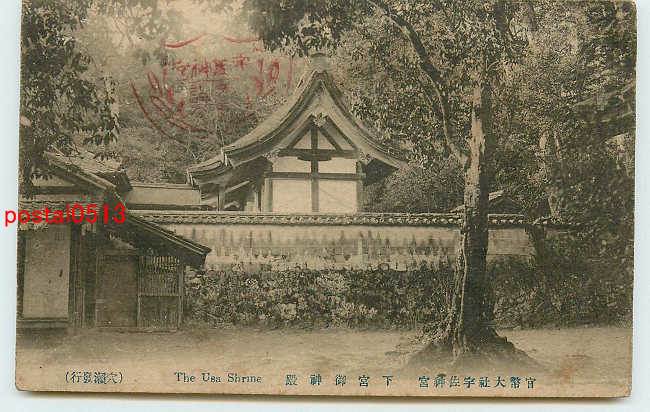 postal0513
(穴瀬發行)
The Usa Shrine
殿神御宮下
宮神佐宇社大幣官